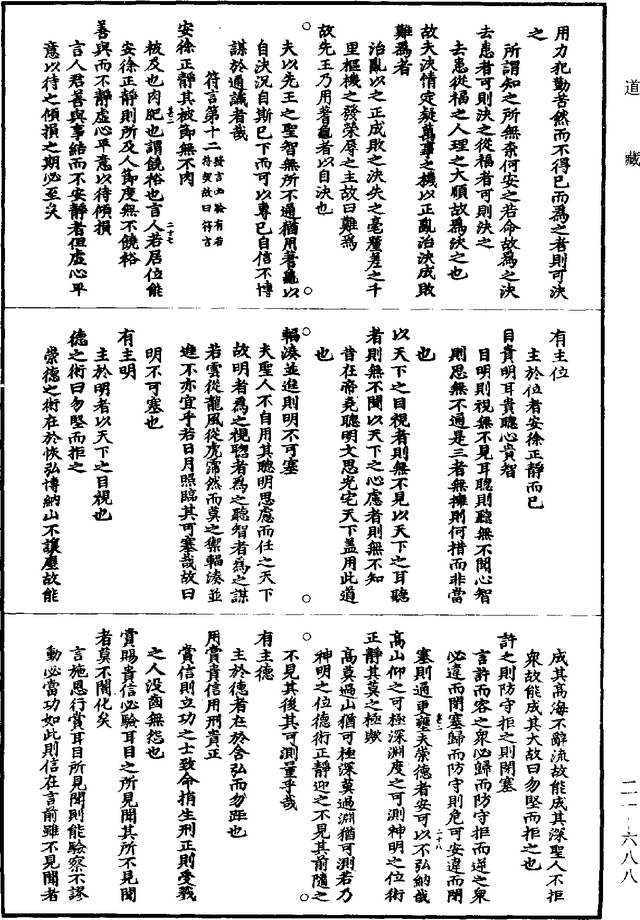 道藏
用力犯勤苦然而不得已而為之者則可決
之
所謂知之所無柰何安之若命故為之決
去患者可則決之從福者可則決之
去患從福之人理之大順故為決之也
故夫決情定疑萬事之機以正亂治決成敗
難為者
治亂以之正成敗之決失之毫釐差之千
里樞機之發榮辱之主故曰難為
故先王乃用蓍龜者以自決也
夫以先王之聖智無所不通猶用蓍龜以
自決況自斯已下而可以專已自信不博
謀於通識者哉
符言第十二發言必驗有若符契故曰符言
安徐正靜其被節無不肉
被及也肉肥也謂饒裕也言人若居位能
安徐正靜則所及人節度無不饒裕
善與而不靜虛心平意以待傾損
言人君善與事結而不安靜者但虛心平
意以待之傾損之期必至矣
有主位
主於位者安徐正靜而已
目貴明耳貴聰心貴智
目明則視無不見耳聰則聽無不聞心智
則思無不通是三者無擁則何措而非當
也
以天下之目視者則無不見以天下之耳聽
者則無不聞以天下之心慮者則無不知
昔在帝堯聰明文思光宅天下蓋用此道
也
輻湊並進則明不可塞
夫聖人不自用其聰明思慮而任之天下
故明者為之視聰者為之聽智者為之謀
若雲從龍風從虎霈然而莫之禦輻湊並
進不亦宜乎若日月照臨其可塞哉故曰
明不可塞也
有主明
主於明者以天下之目視也
德之術曰勿堅而拒之
崇德之術在於恢弘博納山不讓塵故能
成其高海不辭流故能成其深聖人不拒
眾故能成其大故曰勿堅而拒之也
許之則防守拒之則閉塞
言許而容之眾必歸而防守拒而逆之眾
必違而閉塞歸而防守則危可安違而閉
塞則通更壅夫崇德者安可以不弘納哉
高山仰之可極深淵度之可測神明之位術
正靜其莫之極歟
高莫過山猶可極深莫過淵猶可測若乃
神明之位德術正靜迎之不見其前隨之
不見其後其可測量乎哉
有主德
主於德者在於含弘而勿距也
用賞貴信用刑貴正
賞信則立功之士致命捐生刑正則受戮
之人沒齒無怨也
賞賜貴信必驗耳目之所見聞其所不見聞
者莫不闇化矣
言施恩行賞耳目所見聞則能驗察不謬
動必當功如此則信在言前雖不見聞者
二一·六八八